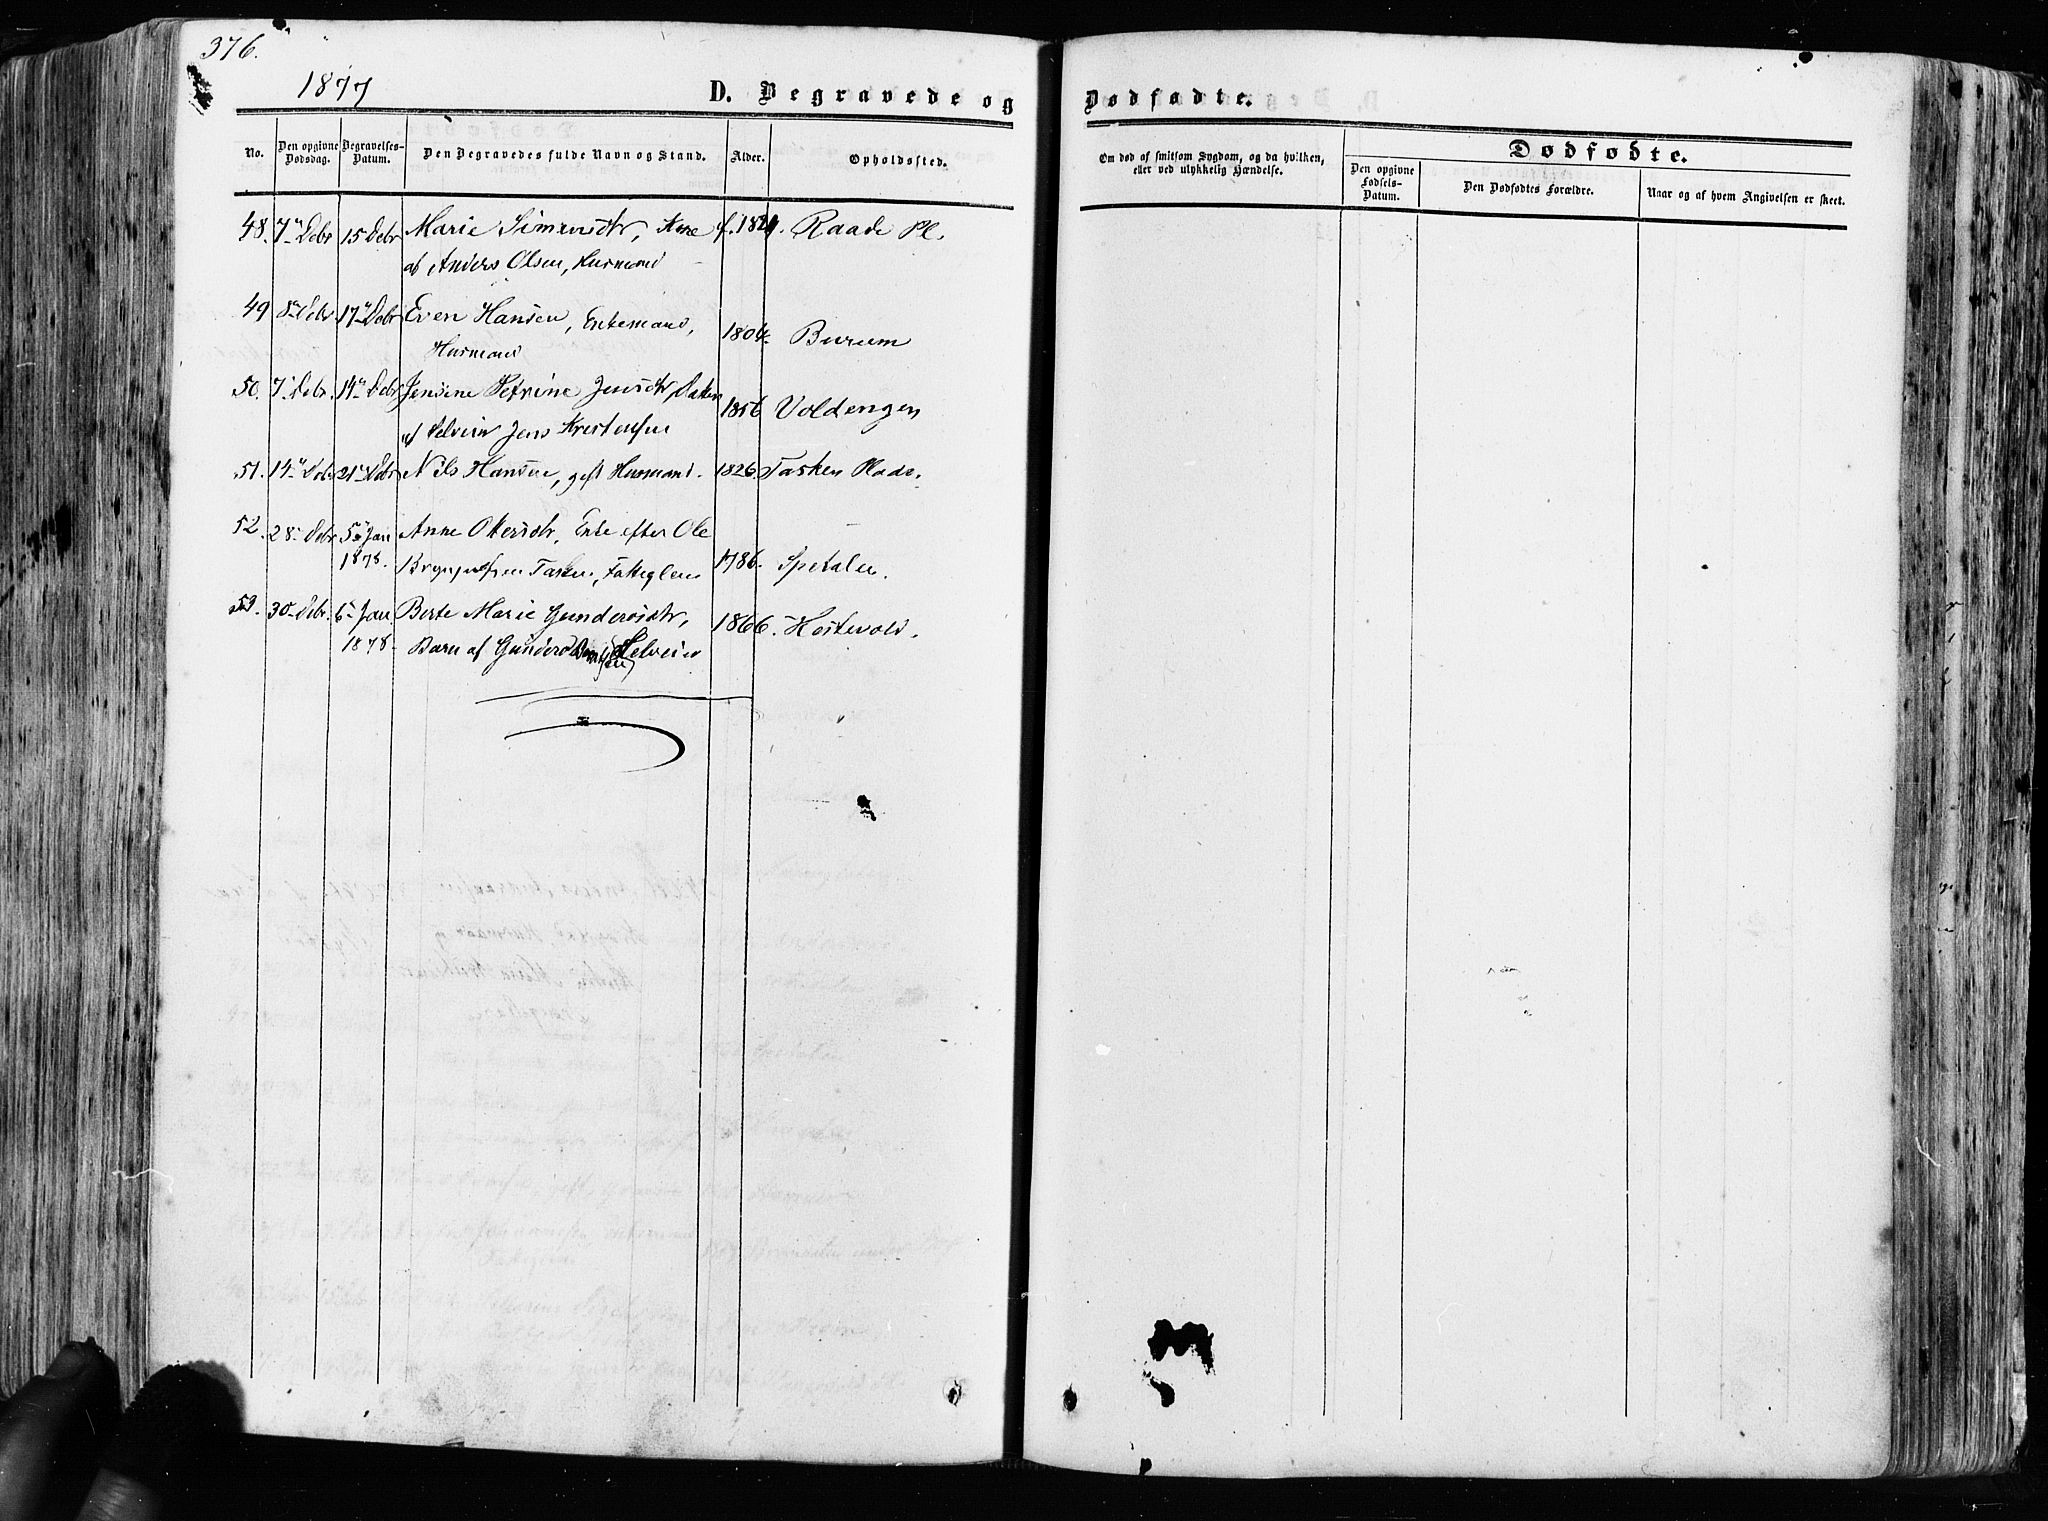 376.
1877
D. Begravede og Dødfødte.
No.
Den opgivne Dødsdag.
Begravelses-Datum.
Den Begravedes fulde Navn og Stand.
Alder.
Opholdssted.
Om død af smitsom Sygdom, og da hvilken, eller ved ulykkelig Hændelse.
Dødfødte.
Den opgivne Fødsels-Datum.
Den Dødfødtes Forældre.
Naar og af hvem Angivelsen er skeet.
48. 7 Debr 15 Debr Marie Simensdtr, Kone f. Raade Pl.
af Anders Olsen, Husmand
49 8 Debr 17 Debr Even Hansen, Enkemand, 1804. Burum
Husmand
50. 7 Debr. 14 Debr Jensine Petrine Jensdtr, Datter 1856 Voldengen
af Selveier Jens Kristensen
51. 14 Debr 21 Debr Nils Hansen, gift Husmand. 1826. Tasken Rade.
52. 28 Debr 5 Jan Anne Olersdtr, Enke efter Ole
1878. Tasken, Fatteglem 1786. Spetalen.
53. 30 Debr. 6 Jan Berte Marie Gundersdtr, 1866. Hestevold.
1878. Barn af Gunder Selveier